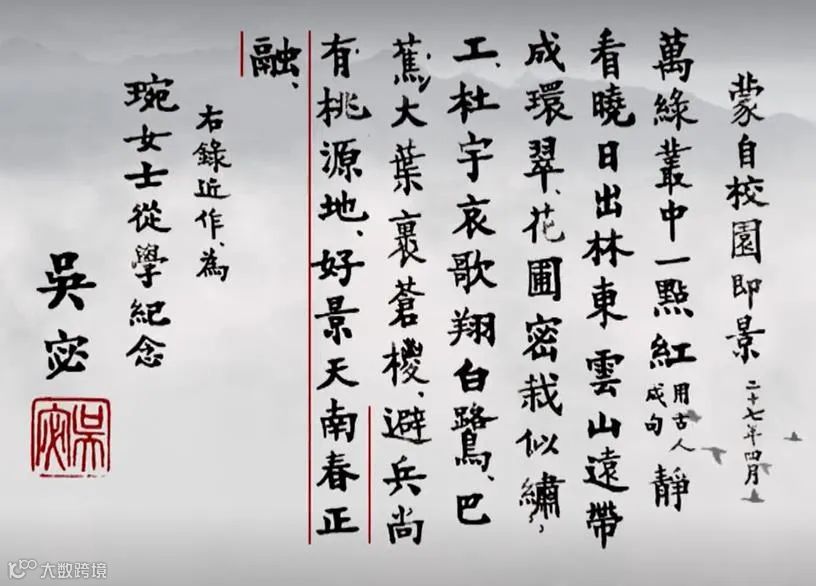 蒙自校園即景 二十七年四月
萬綠叢中一點紅 用古人成句 靜
看曉日出林東雲山遠帶
成環翠、花圃密栽似繡、
工、杜宇哀歌翔白鷺、巴
蕉大葉裹蒼椶、避兵尚
有桃源地、好景天南春正
融、
右錄近作、為
琬女士從學紀念
吳宓
吳宓
大数跨境